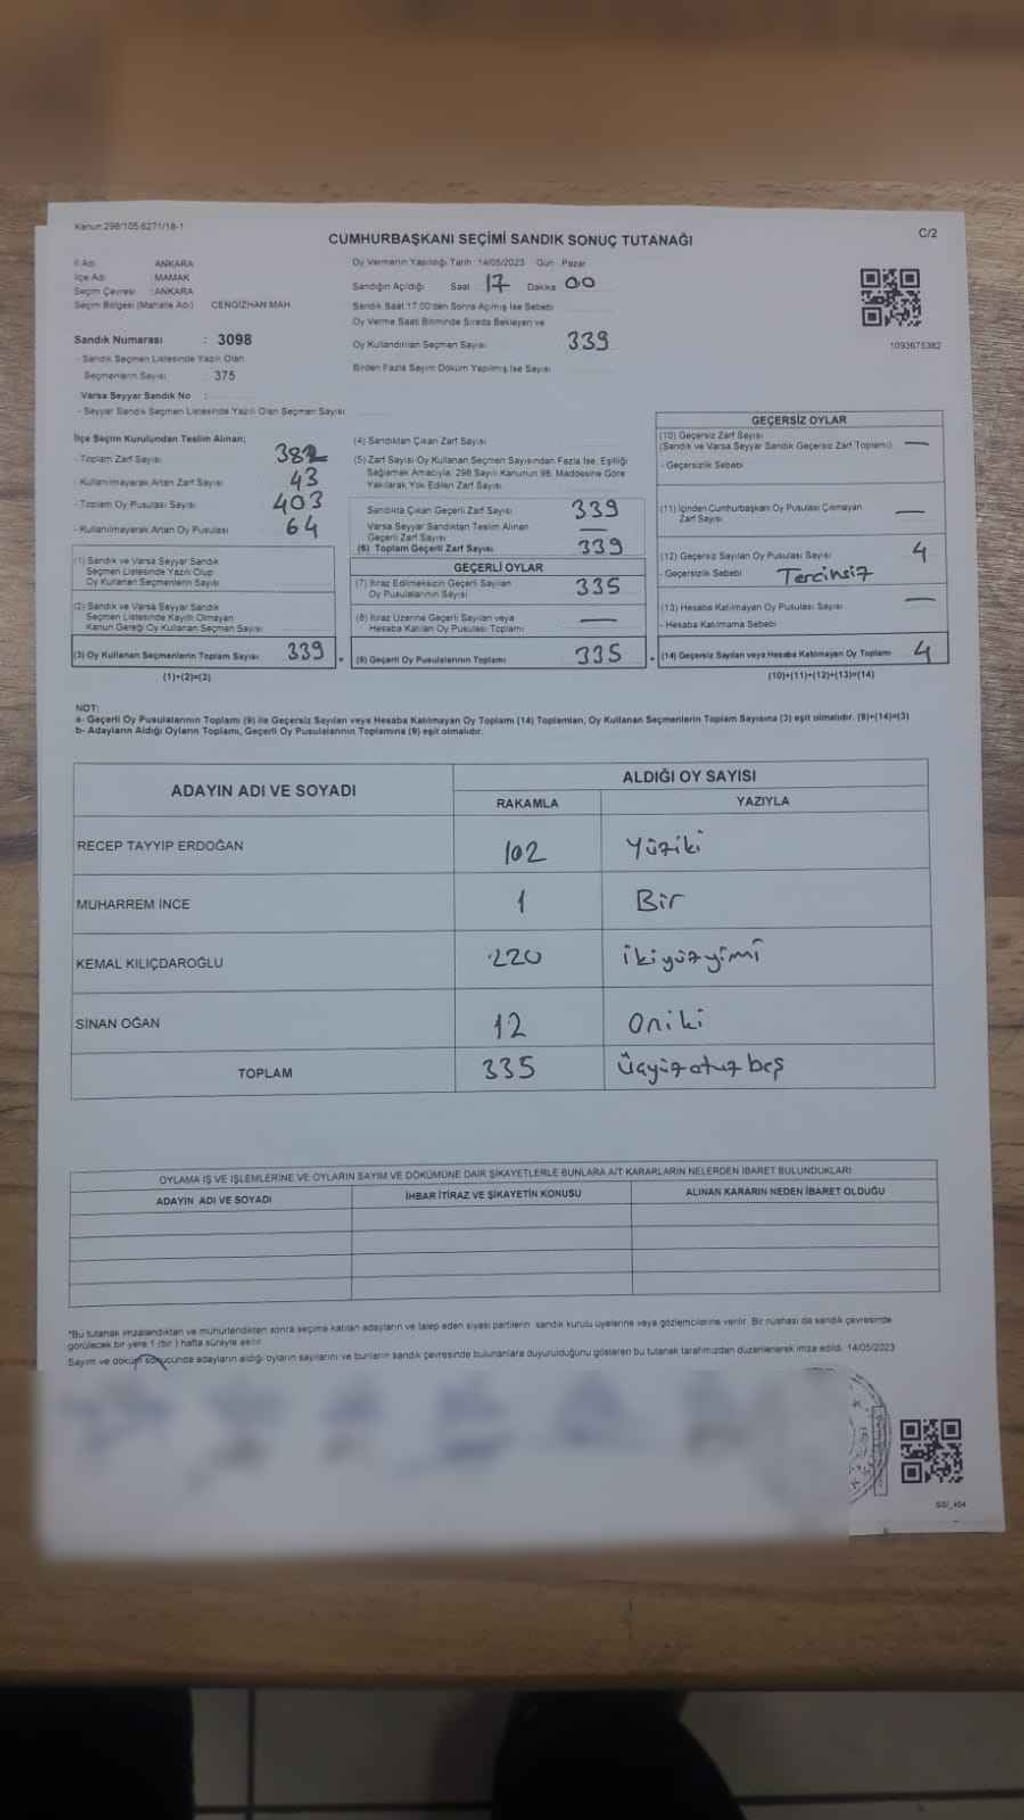 Kanun 298/105 6271/18-1
C/2
CUMHURBAŞKANI SEÇİMİ SANDIK SONUÇ TUTANAĞI
İl Adı ANKARA
İlçe Adı MAMAK
Seçim Çevresi : ANKARA
Seçim Bölgesi (Mahalle Adı) CENGİZHAN MAH
Sandık Numarası : 3098
- Sandık Seçmen Listesinde Yazılı Olan
Seçmenlerin Sayısı : 375
- Varsa Seyyar Sandık No :
- Seyyar Sandık Seçmen Listesinde Yazılı Olan Seçmen Sayısı
Oy Vermenin Yapıldığı Tarih : 14/05/2023 Gün : Pazar
Sandığın Açıldığı Saat 17 Dakika 00
Sandık Saat 17:00'den Sonra Açılmış İse Sebebi
Oy Verme Saati Bitiminde Sırada Bekleyen ve
Oy Kullandırılan Seçmen Sayısı 339
Birden Fazla Sayım Döküm Yapılmış İse Sayısı
1093675382
İlçe Seçim Kurulundan Teslim Alınan;
- Toplam Zarf Sayısı 382
- Kullanılmayarak Artan Zarf Sayısı 43
- Toplam Oy Pusulası Sayısı 403
- Kullanılmayarak Artan Oy Pusulası 64
(1) Sandık ve Varsa Seyyar Sandık
Seçmen Listesinde Yazılı Olup
Oy Kullanan Seçmenlerin Sayısı
(2) Sandık ve Varsa Seyyar Sandık
Seçmen Listesinde Kayıtlı Olmayan
Kanun Gereği Oy Kullanan Seçmen Sayısı
(3) Oy Kullanan Seçmenlerin Toplam Sayısı 339
(1)+(2)=(2)
(4) Sandıktan Çıkan Zarf Sayısı
(5) Zarf Sayısı Oy Kullanan Seçmen Sayısından Fazla İse, Eşitliği
Sağlamak Amacıyla, 298 Sayılı Kanunun 98. Maddesine Göre
Yakılarak Yok Edilen Zarf Sayısı
Sandıkta Çıkan Geçerli Zarf Sayısı 339
Varsa Seyyar Sandıktan Teslim Alınan
Geçerli Zarf Sayısı —
(6) Toplam Geçerli Zarf Sayısı 339
GEÇERLİ OYLAR
(7) İtiraz Edilmeksizin Geçerli Sayılan
Oy Pusulalarının Sayısı 335
(8) İtiraz Üzerine Geçerli Sayılan veya
Hesaba Katılan Oy Pusulası Toplamı —
(9) Geçerli Oy Pusulalarının Toplamı 335
GEÇERSİZ OYLAR
(10) Geçersiz Zarf Sayısı
(Sandık ve Varsa Seyyar Sandık Geçersiz Zarf Toplamı) —
- Geçersizlik Sebebi
(11) İçinden Cumhurbaşkanı Oy Pusulası Çıkmayan
Zarf Sayısı —
(12) Geçersiz Sayılan Oy Pusulası Sayısı 4
- Geçersizlik Sebebi Tercihsiz
(13) Hesaba Katılmayan Oy Pusulası Sayısı —
- Hesaba Katılmama Sebebi
(14) Geçersiz Sayılan veya Hesaba Katılmayan Oy Toplamı 4
(10)+(11)+(12)+(13)=(14)
NOT:
a- Geçerli Oy Pusulalarının Toplamı (9) ile Geçersiz Sayılan veya Hesaba Katılmayan Oy Toplamı (14) Toplamları, Oy Kullanan Seçmenlerin Toplam Sayısına (3) eşit olmalıdır. (9)+(14)=(3)
b- Adayların Aldığı Oyların Toplamı, Geçerli Oy Pusulalarının Toplamına (9) eşit olmalıdır.
ADAYIN ADI VE SOYADI
ALDIĞI OY SAYISI
RAKAMLA YAZIYLA
RECEP TAYYİP ERDOĞAN 102 Yüziki
MUHARREM İNCE 1 Bir
KEMAL KILIÇDAROĞLU 220 ikiyüzyimi
SİNAN OĞAN 12 oniki
TOPLAM 335 Üçyüzotuzbeş
OYLAMA İŞ VE İŞLEMLERİNE VE OYLARIN SAYIM VE DÖKÜMÜNE DAİR ŞİKAYETLERLE BUNLARA AİT KARARLARIN NELERDEN İBARET BULUNDUKLARI
ADAYIN ADI VE SOYADI İHBAR İTİRAZ VE ŞİKAYETİN KONUSU ALINAN KARARIN NEDEN İBARET OLDUĞU
*Bu tutanak imzalandıktan ve mühürlendikten sonra seçime katılan adayların ve talep eden siyasi partilerin sandık kurulu üyelerine veya gözlemcilerine verilir. Bir nüshası da sandık çevresinde
görülecek bir yere 1 (bir) hafta süreyle asılır.
Sayım ve döküm sonucunda adayların aldığı oyların sayılarını ve bunların sandık çevresinde bulunanlara duyurulduğunu gösteren bu tutanak tarafımızdan düzenlenerek imza edildi. 14/05/2023